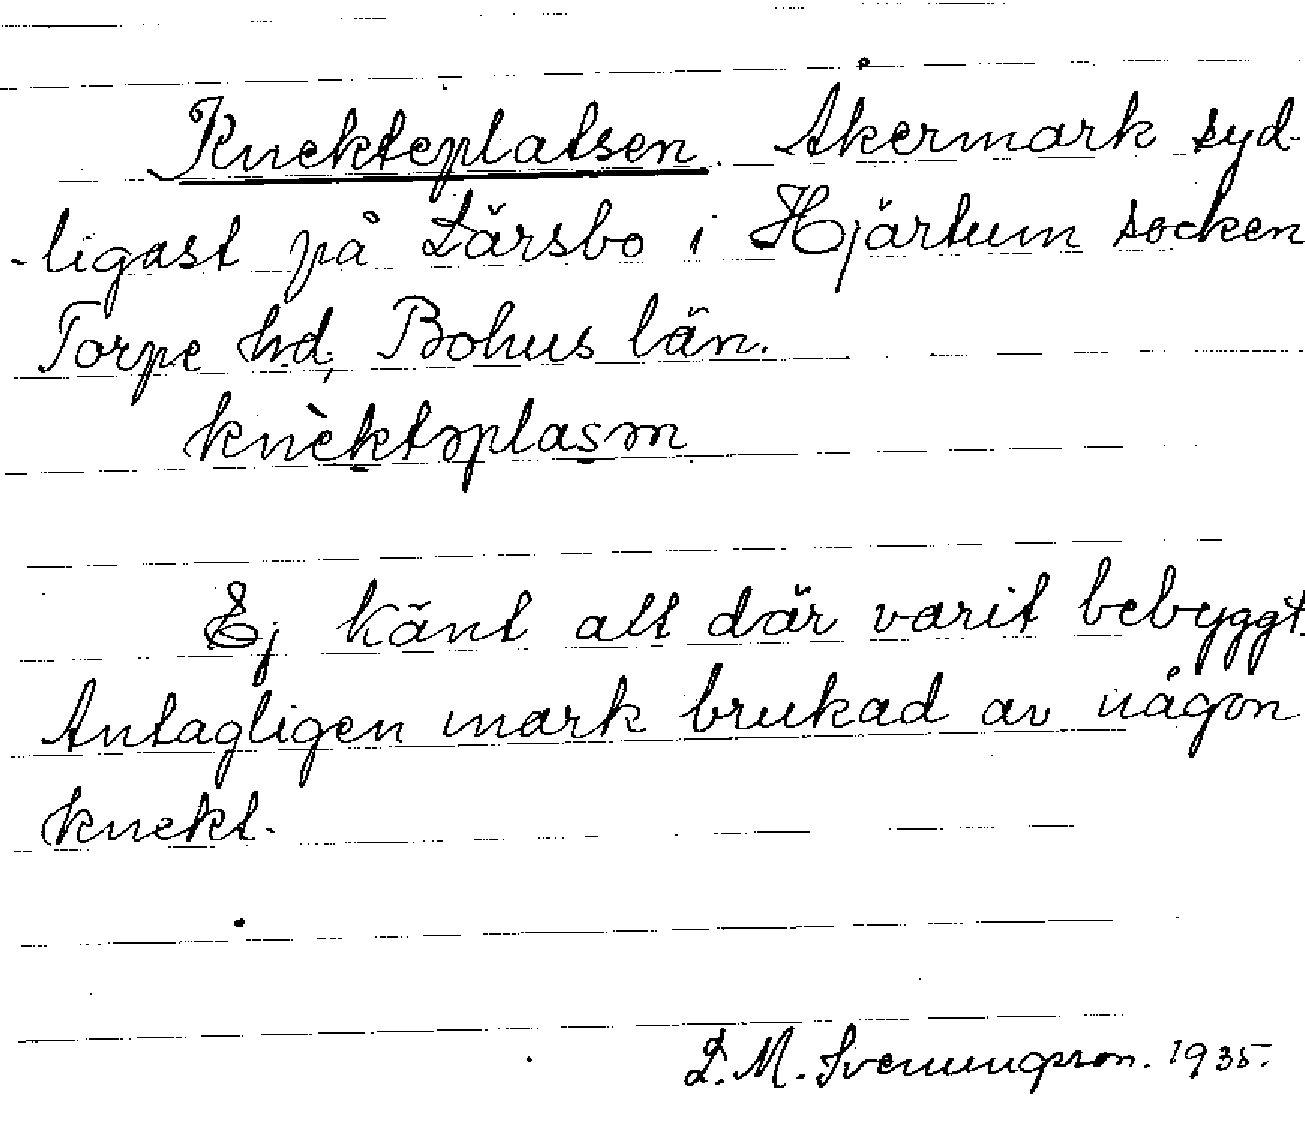 Knekteplatsen. Åkermark syd-
-ligast på Lärsbo i Hjärtum socken
Torpe hd, Bohus län.
knèktəplasən
Ej känt att där varit bebyggt.
Antagligen mark brukad av någon
knekt.
L. M. Svenungsson. 1935.